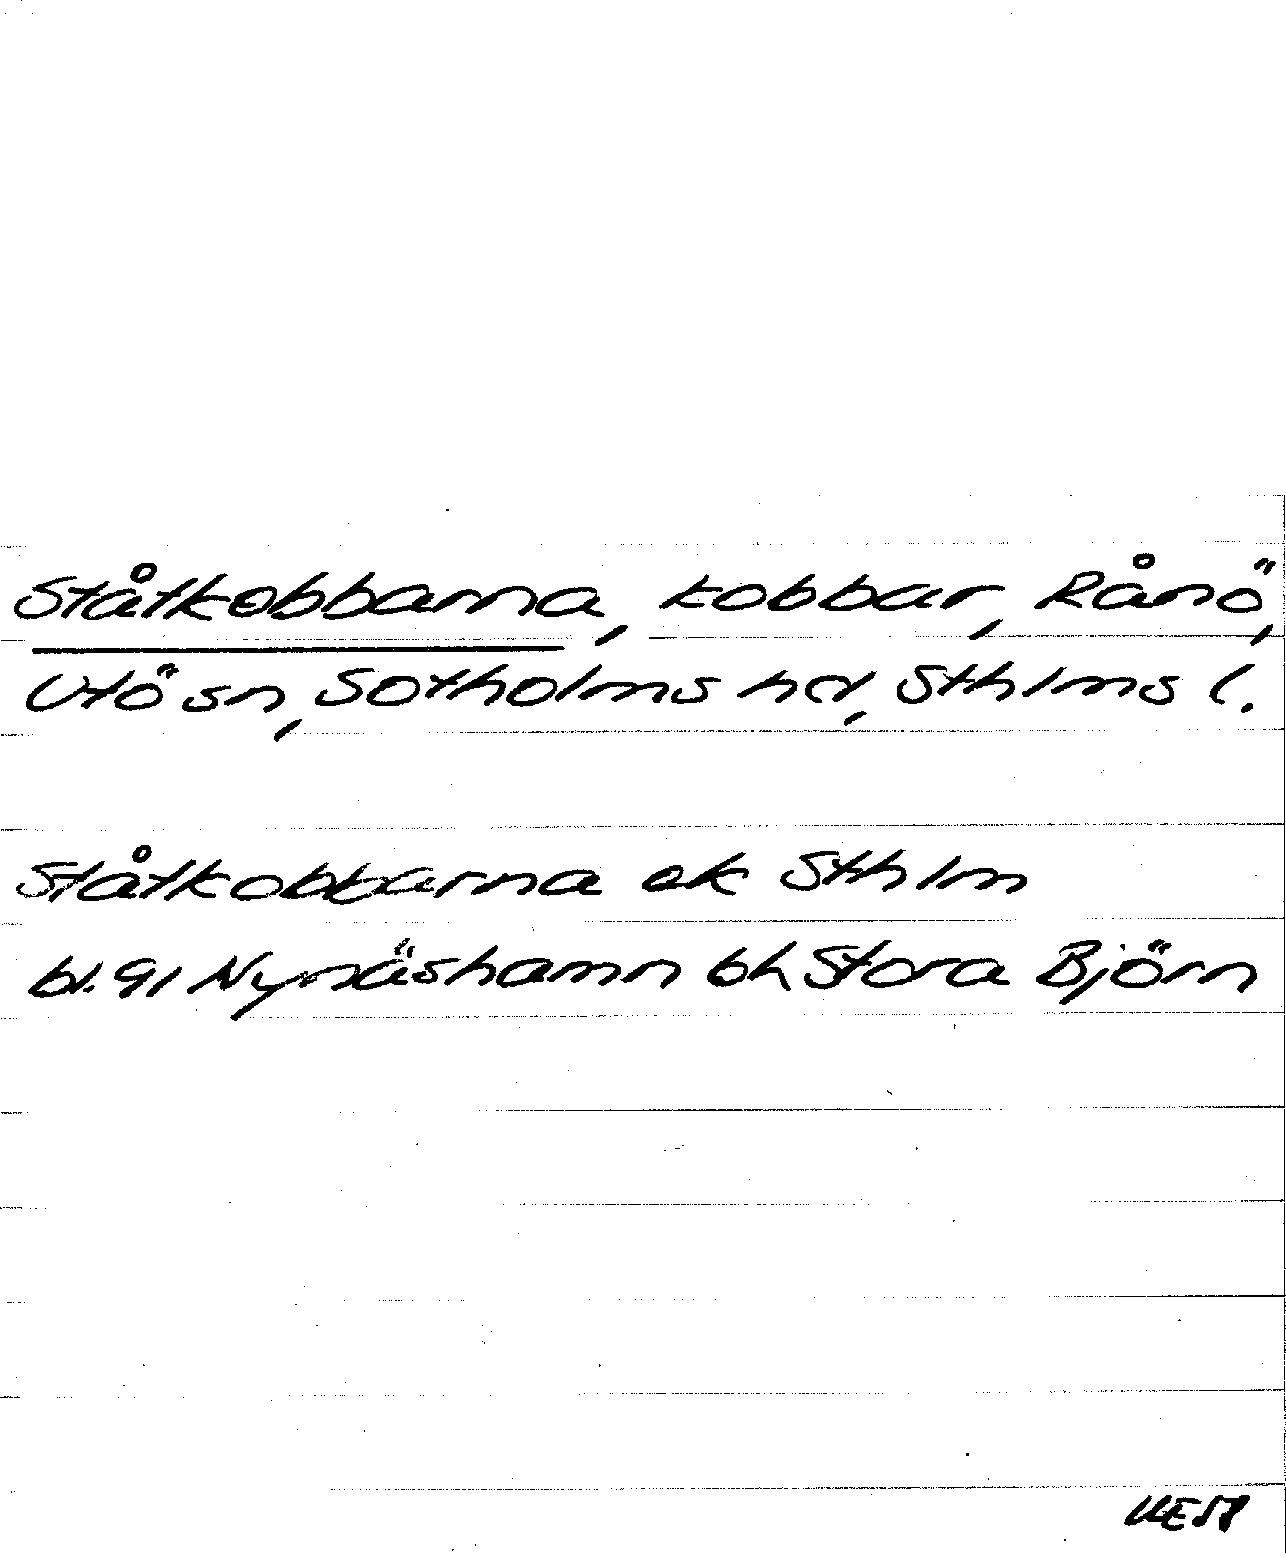 Ståtkobbarna, kobbar, Rånö,
Utö sn, Sotholms hd, Sthlms l.
Ståtkobbarna ek Sthlm
bl. 91 Nynäshamn bh Stora Björn